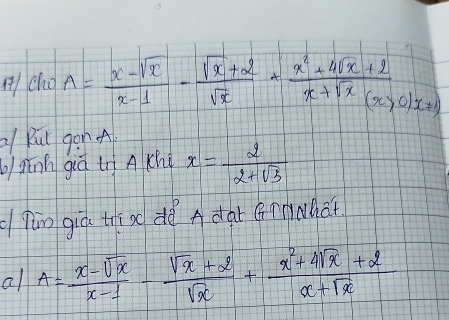 17/ Cho A = (x - √x)/(x - 1) - (√x + 2)/√x + (x² + 4√x + 2)/(x + √x) (x > 0; x ≠ 1)
a/ Rút gọn A.
b/ Tính giá trị A khi x = 2/(2 + √3)
c/ Tìm giá trị x để A đạt GTNNhất.
a/ A = (x - √x)/(x - 1) - (√x + 2)/√x + (x² + 4√x + 2)/(x + √x)